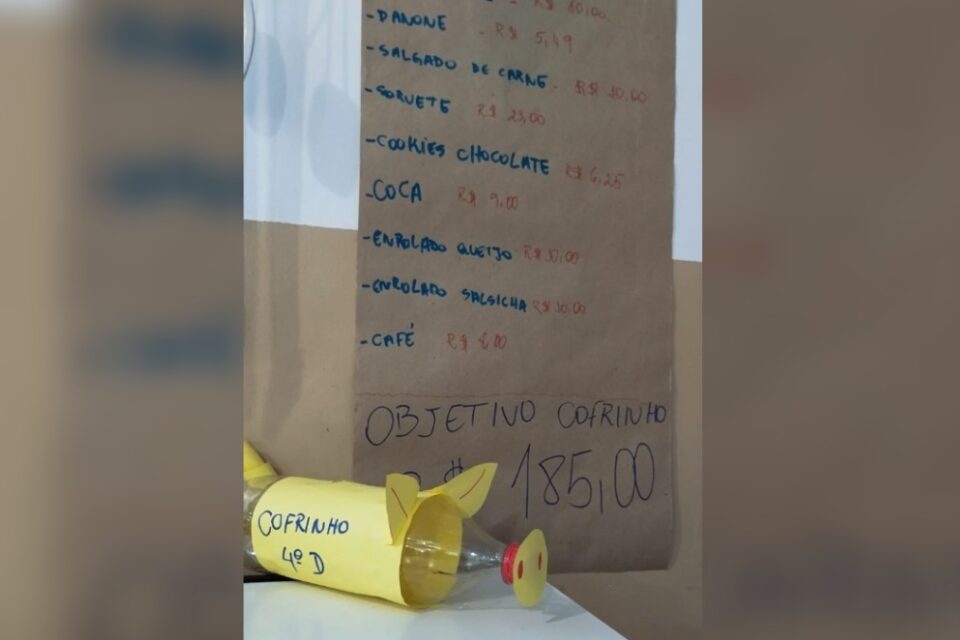 R$ 10,00
-DANONE - R$ 5,49
-SALGADO DE CARNE - R$ 10,00
-SORVETE R$ 23,00
-COOKIES CHOCOLATE R$ 6,25
-COCA R$ 9,00
-ENROLADO QUEIJO R$ 10,00
-ENROLADO SALSICHA R$ 10,00
-CAFÉ R$
OBJETIVO COFRINHO
$ 185,00
COFRINHO
4º D